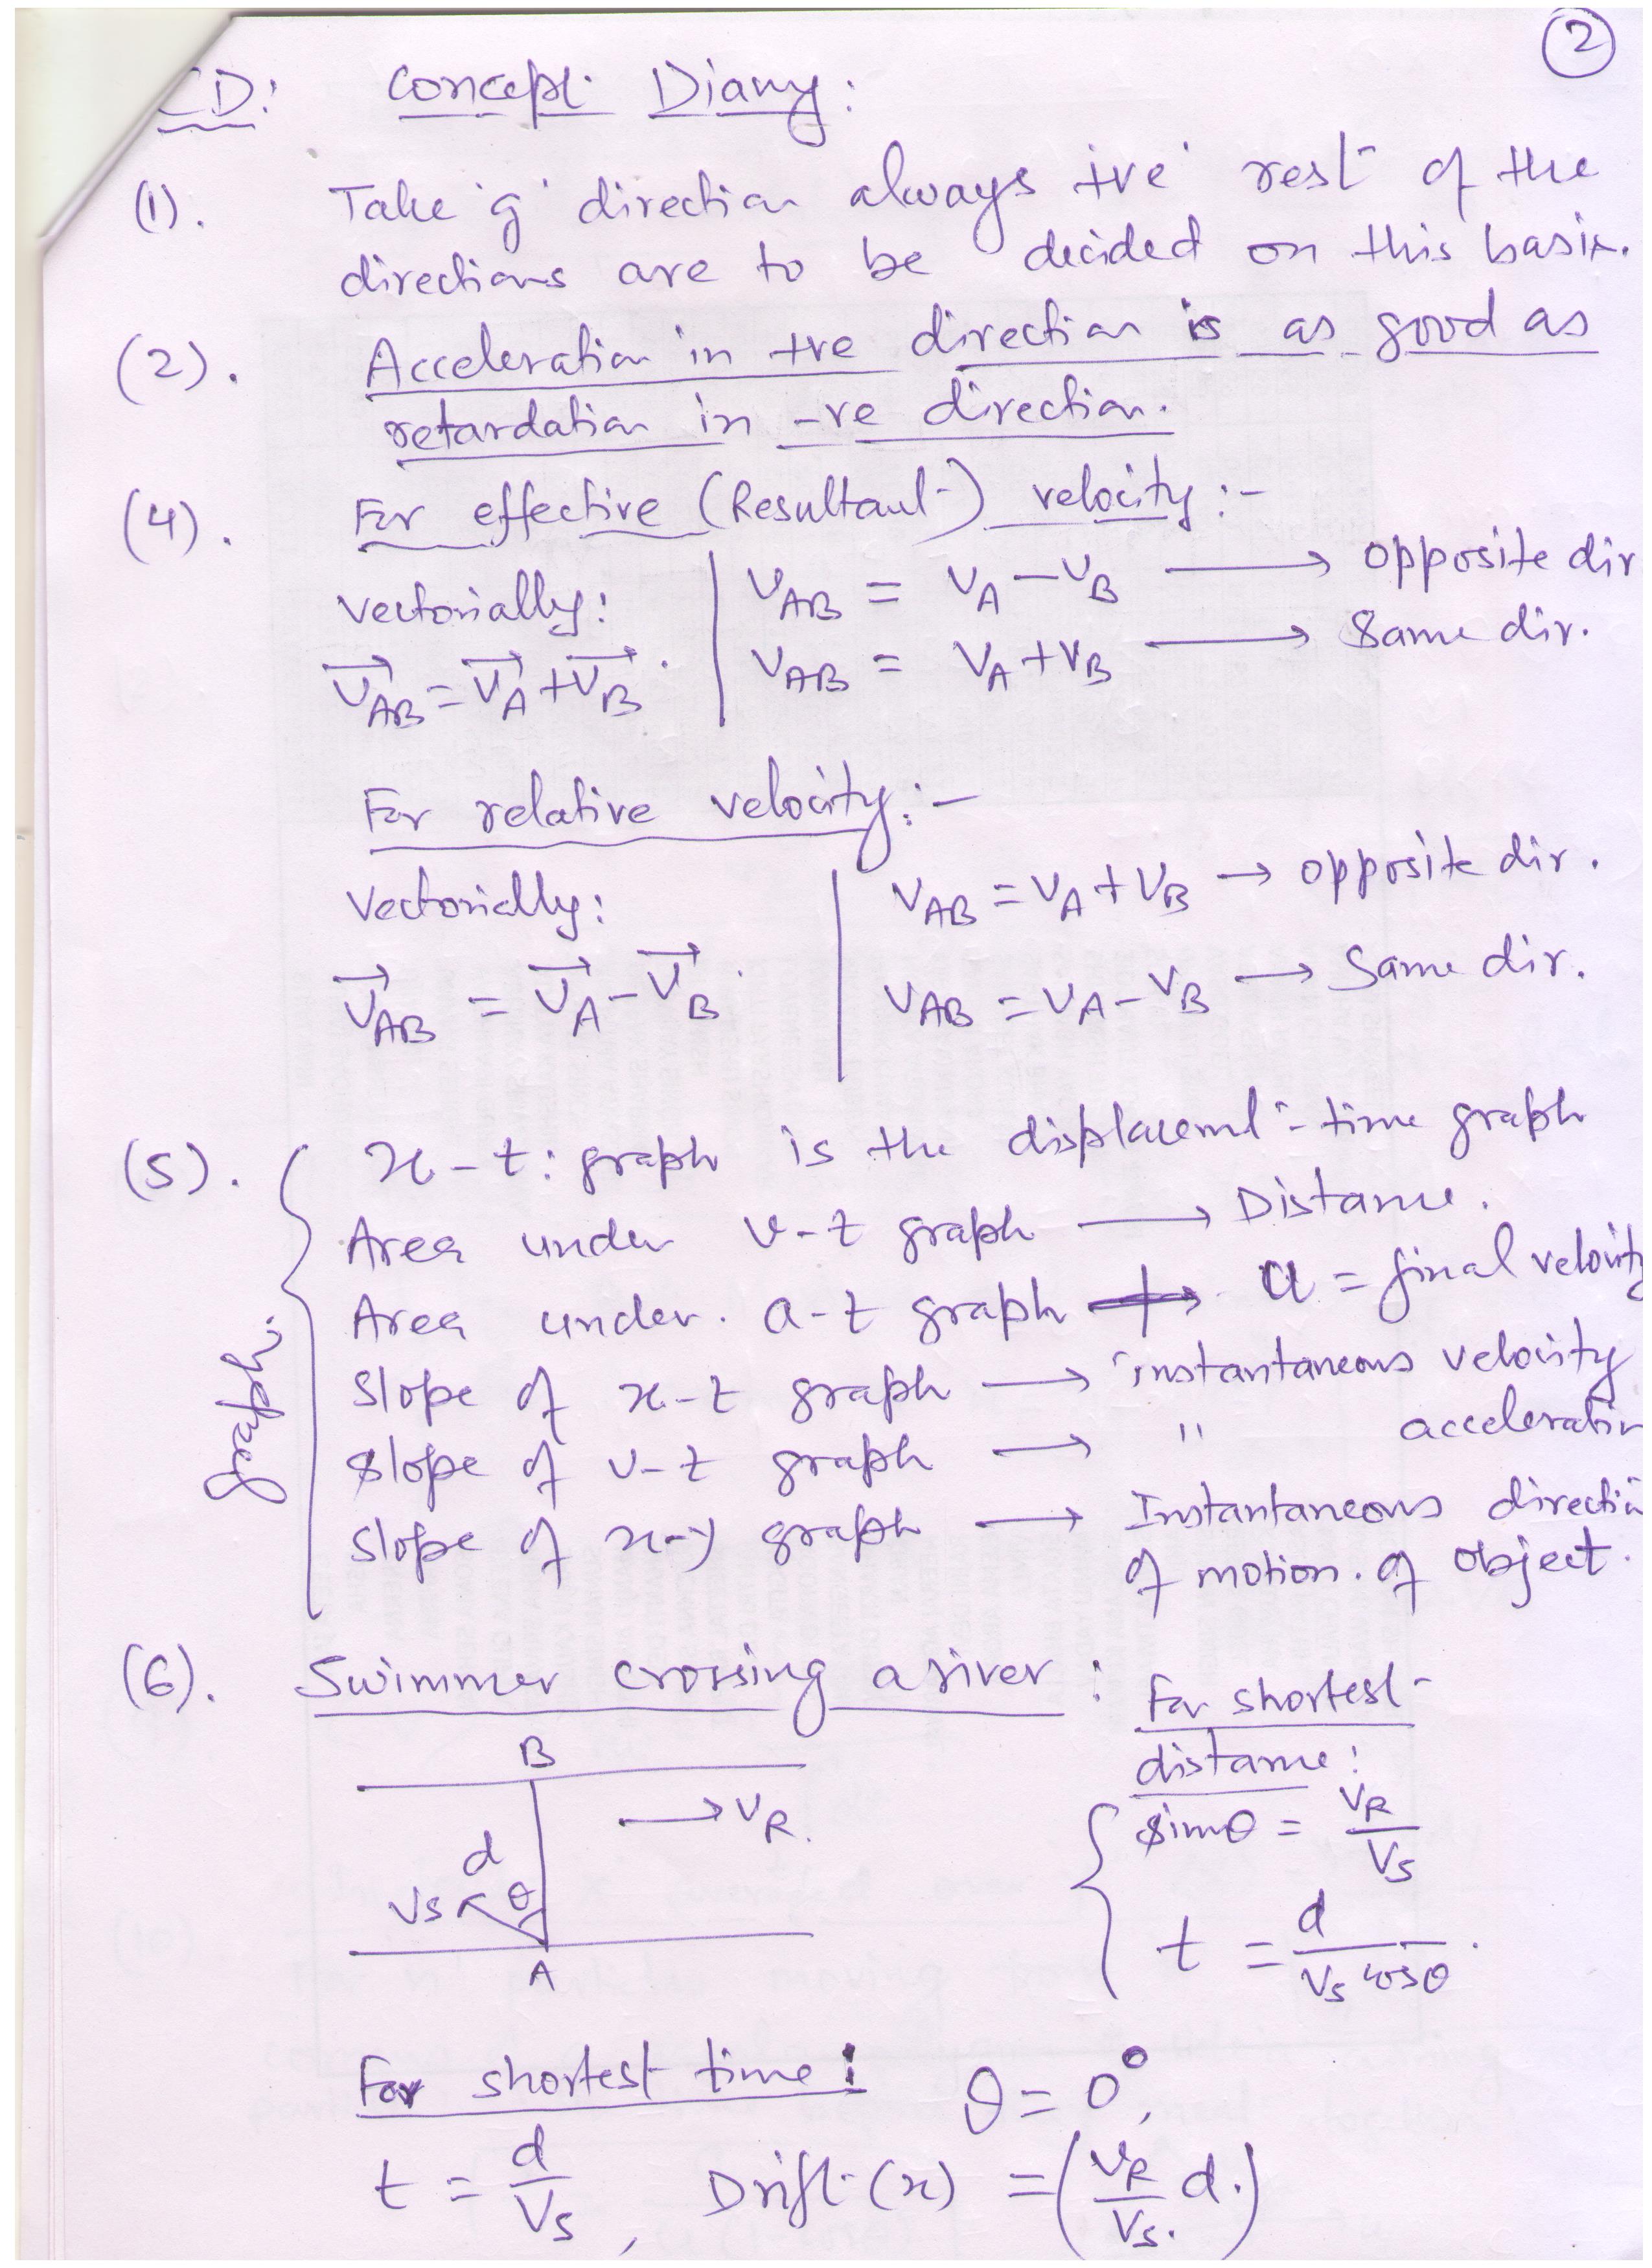 2
CD: Concept Diary:
(1). Take 'g' direction always +ve rest of the
directions are to be decided on this basis.
(2). Acceleration in +ve direction is as good as
retardation in -ve direction.
(4). For effective (Resultant) velocity:-
Vectorially:
V⃗AB = V⃗A + V⃗B.
VAB = VA - VB → opposite dir
VAB = VA + VB → Same dir.
For relative velocity:-
Vectorially:
V⃗AB = V⃗A - V⃗B.
VAB = VA + VB → opposite dir.
VAB = VA - VB → Same dir.
(5). graph:
x-t: graph is the displacement-time graph
Area under v-t graph → Distance.
Area under a-t graph → u = final velocity
Slope of x-t graph → instantaneous velocity
Slope of v-t graph → " acceleration
Slope of x-y graph → Instantaneous directi
of motion. of object.
(6). Swimmer crossing a river:
B
→ VR.
d
VS θ
A
For shortest
distance:
sinθ = VR/VS
t = d/(VS cosθ).
For shortest time: θ = 0°,
t = d/VS, Drift (x) = (VR/VS. d.)